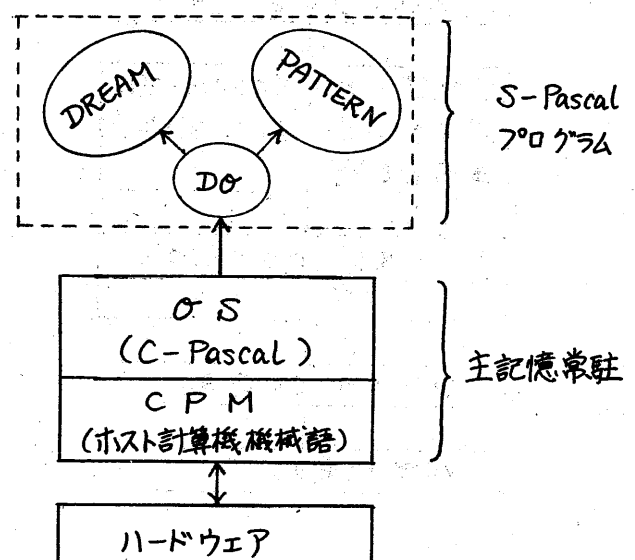 DREAM
PATTERN
DO
S-Pascal
プログラム
OS
(C-Pascal)
CPM
(ホスト計算機機械語)
主記憶常駐
ハードウェア